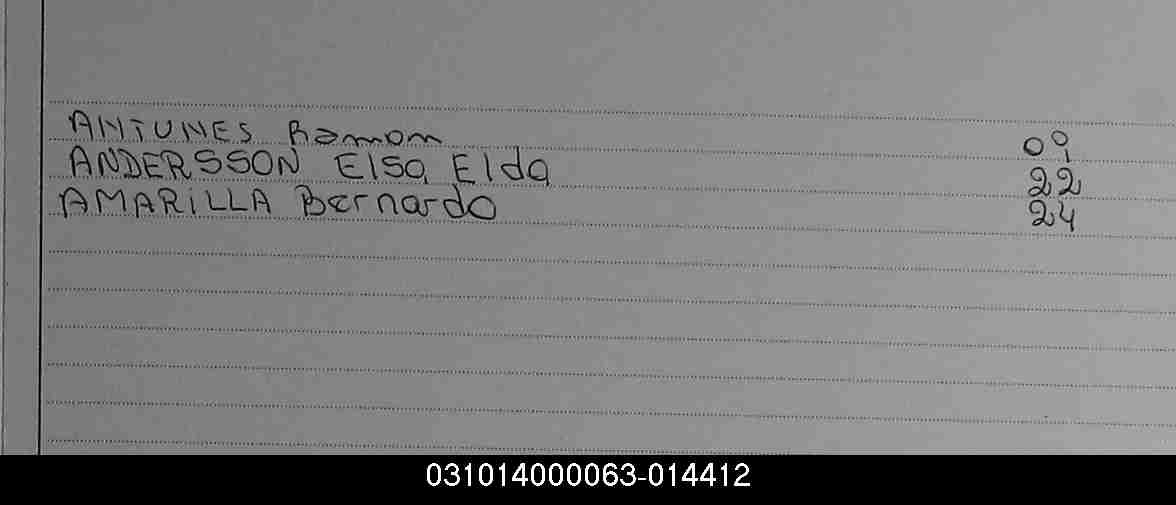 ANTUNES Ramom 09
ANDERSSON Elsa Elda 22
AMARiLLA Bernardo 24
031014000063-014412